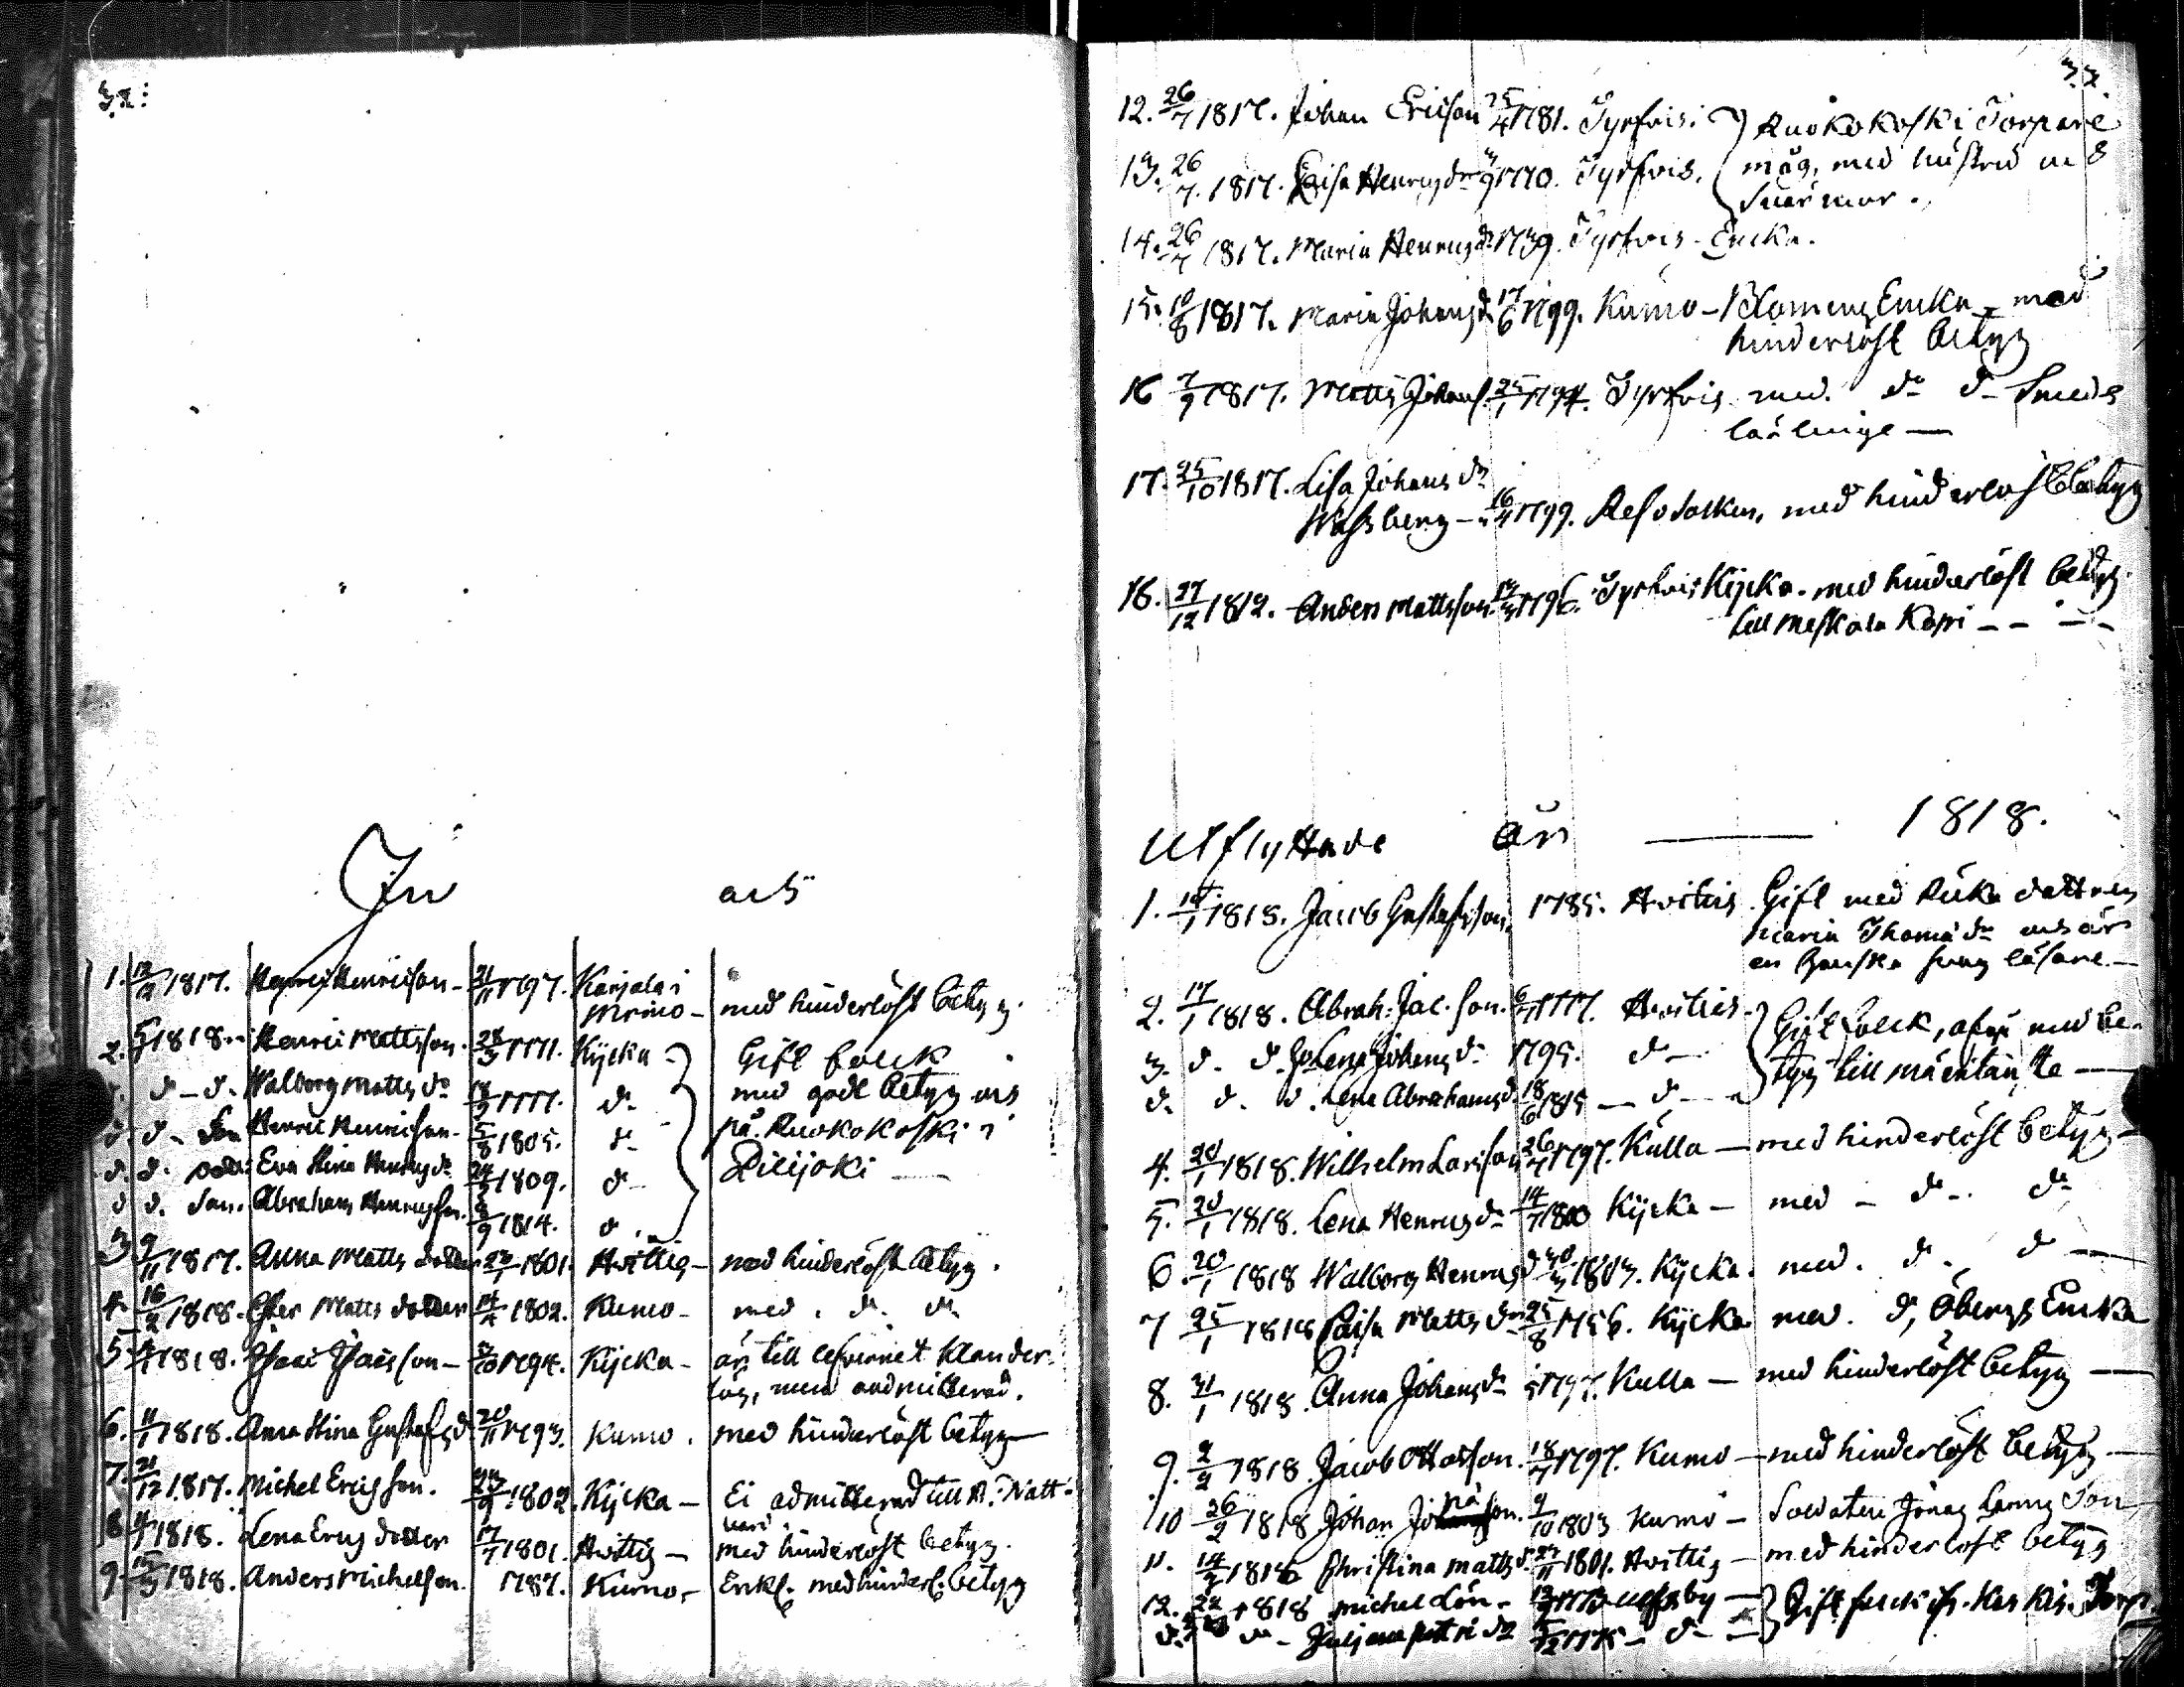 32.
In
1. 12/12 1817. Henric Henricson - 21/11 1797. Karjala i
Mrimo - med hinderlöst betyg.
2. 5/1 1818. Henric Mattsson. 28/3 1771. Kjicka - Gift folck
d - d. Walborg Matts dr 18/2 1777. d. med godt betyg
d. d - Son Henric Henricson. 5/8 1805. d - på Ruokokoski i
d. d. dotr. Eva Stina Henrics dr 24/2 1809. d - Piilijoki
d d. Son. Abraham Henricsson. 9/9 1814. d.
3. 9/11 1817. Anna Matts dotter 1801. Hvittis - med hinderlöst betyg.
4. 16/2 1818. Matts dotter 14/4 1802. Kumo - med. d. d.
5. 1818. Isaac Isacsson - 1794. Kjicka - är till lefvernet klander
lös, men admitterad.
6. 11/1 1818. Anna Stina Gustafs d. 20/11 1793. Kumo. med hinderlöst betyg
7. 21/12 1817. Michel Ericsson. 1802. Kjicka - Ei admitterad till H. Natt-
vard.
8. 4/1 1818. Lena Erics dotter 17/7 1801. Hvittis - med hinderlöst betyg.
9. 1818. Anders Michelson. 1787. Kumo - Enkl. med hinderl. betyg
33.
12. 26/7 1817. Johan Ericson 25/4 1781. Tyrfvis. Ruokokoski Torpare
13. 26/7. 1817. Caisa Henrics dr 1770. Tyrfvis. måg, med hustru och
Svärmor.
14. 26/7 1817. Maria Henrics dr 1739. Tyrfvis - Encka.
15. 10/8 1817. Maria Johans d. 17/6 1799. Kumo - Blomens Encka - med
hinderlöst betyg
16 7/9 1817. Matts Johans. 25/1 1794. Tyrfvis med. d. d - Smeds
lärlinge -
17. 25/10 1817. Lisa Johans dr
Wassberg - 16/4 1799. Reso Socken, med hinderlöst betyg
18. 27/12 1812. Anders Mattsson. 1796. Tyrfvis Kjicka. med hinderlöst betyg
till Meskala Kapri - - - -
Utflyttade år — 1818.
1. 1818. Jacob Gustafsson, 1785. Hvittis. Gift med dottren
Maria Thomæ dr och är
en ganska svag läsare. -
2. 17/1 1818. Abrah: Jac. Son. 1777. Hvittis. Gift folck, med be-
3. d. d. Lena Johans dr 1795. d - tyg till
d. d. d. Lena Abrahams d. 18/6 1815 - d -
4. 20/1 1818. Wilhelm Larsson 26/4 1797. Kulla - med hinderlöst betyg -
5. 20/1 1818. Lena Henrics dr 14/7 1800 Kjicka - med - d -. d.
6. 20/1 1818 Walborg Henrics d 1803. Kjicka. med. d., d -
7 25/1 1818 Caisa Matts dr 25/8 1756. Kjicka med. d, Öbergs Encka
8. 31/1 1818. Anna Johans dr 1797. Kulla - med hinderlöst betyg -
9. 2/2 1818. Jacob Ottosson. 18/7 1797. Kumo - med hinderlöst betyg -
10 26/2 1818 Johan Jonäson. 9/10 1803 Kumo - Soldaten Jonas Son
11. 14/3 1818 Christina Matts d. 1801. Hvittis - med hinderlöst betyg
12. 1818 Michel Lön - 1773 Ulfsby - Gift folck Torp
d. d - Juliana Petri dr 1775 - d -